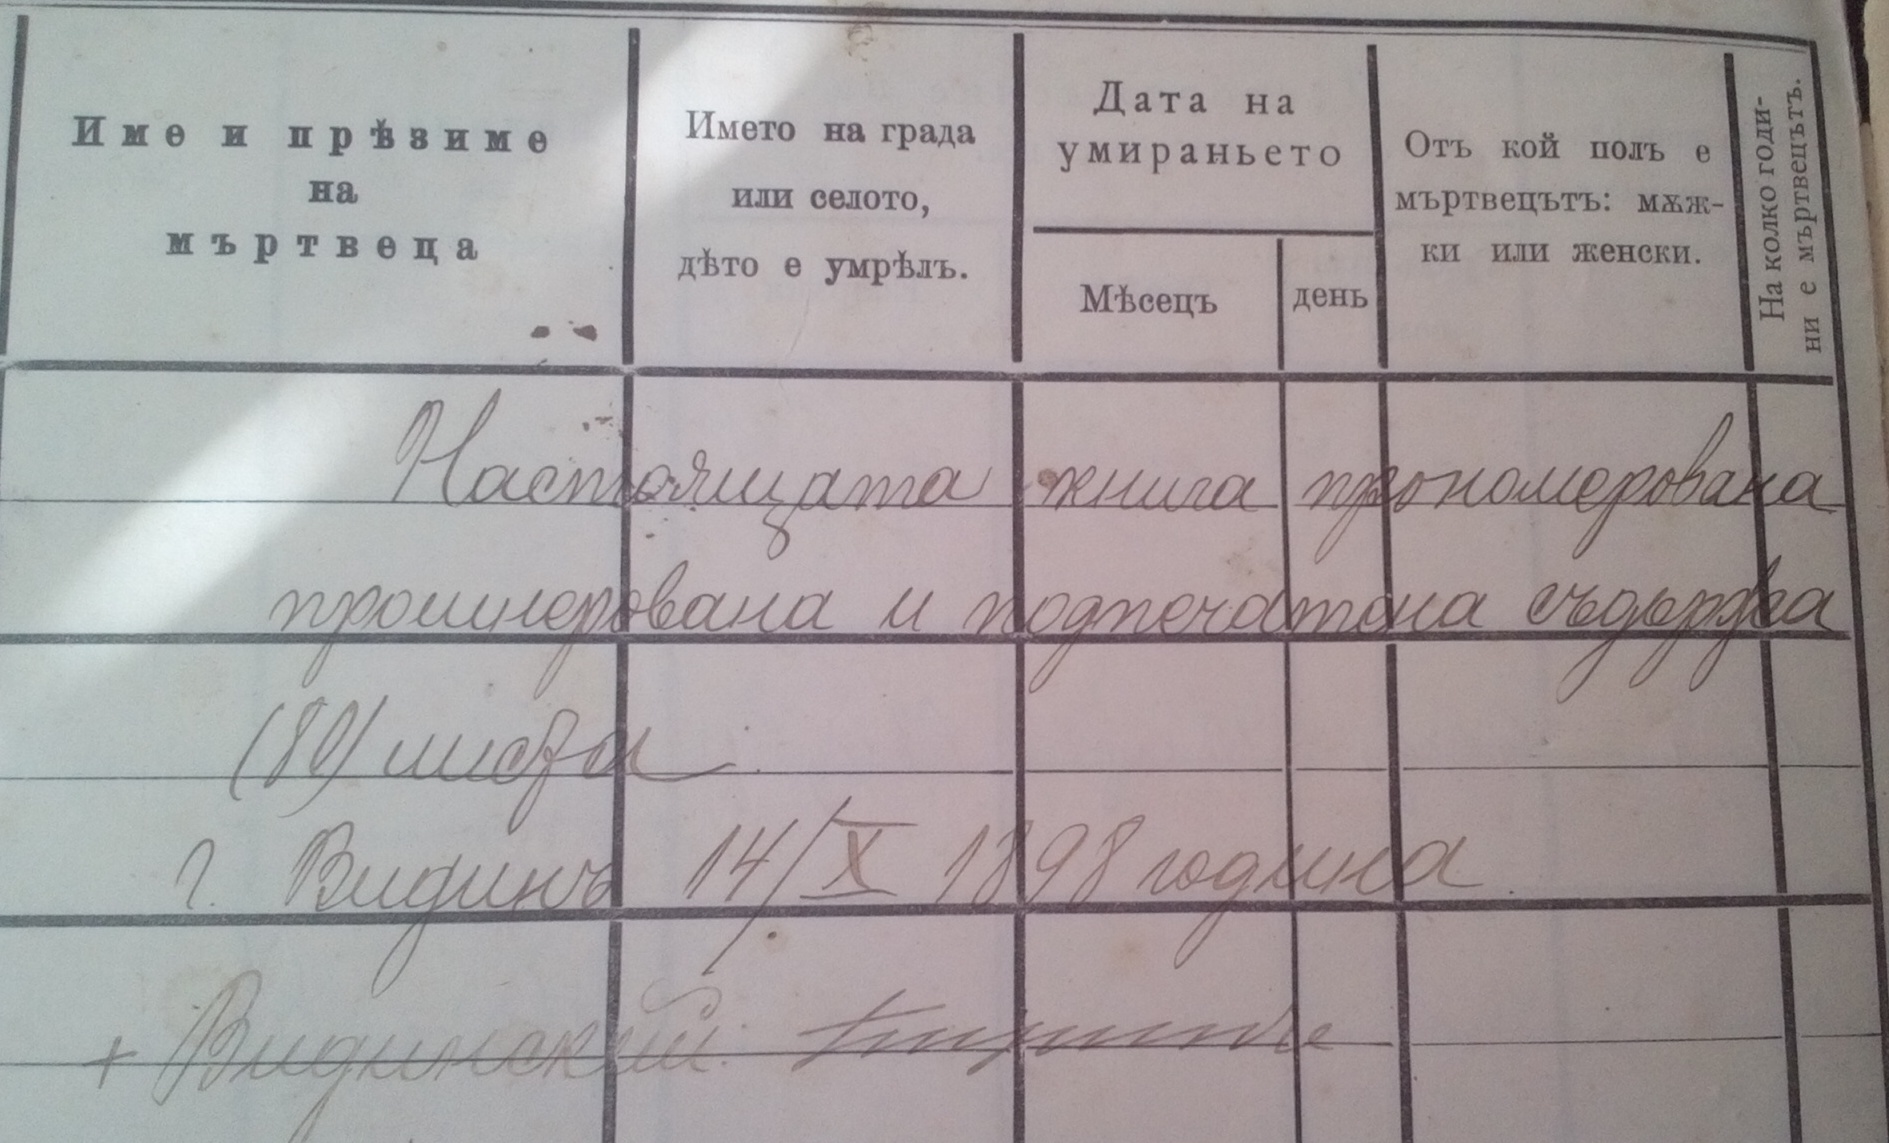 Име и прѣзиме
на
мъртвеца
Името на града
или селото,
дѣто е умрѣлъ.
Дата на
умираньето
Мѣсецъ
день
Отъ кой полъ е
мъртвецътъ: мѫж-
ки или женски.
На колко годи-
ни е мъртвецътъ.
Настоящата книга прономерована
прошнерована и подпечатана съдържа
(80) листа
г. Видинъ 14/X 1898 година.
+ Видинский